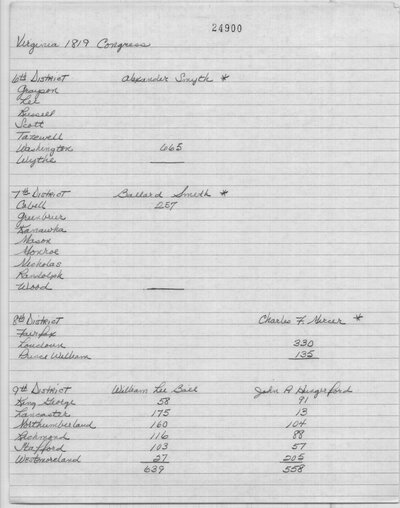 24900
Virginia 1819 Congress
6th District Alexander Smyth *
Grayson
Lee
Russell
Scott
Tazewell
Washington 665
Wythe
7th District Ballard Smith *
Cabell 257
Greenbrier
Kanawha
Mason
Monroe
Nicholas
Randolph
Wood
8th District Charles F. Mercer *
Fairfax
Loudoun 330
Prince William 135
9th District William Lee Ball John P Hungerford
King George 58 91
Lancaster 175 13
Northumberland 160 104
Richmond 116 88
Stafford 103 57
Westmoreland 27 205
639 558